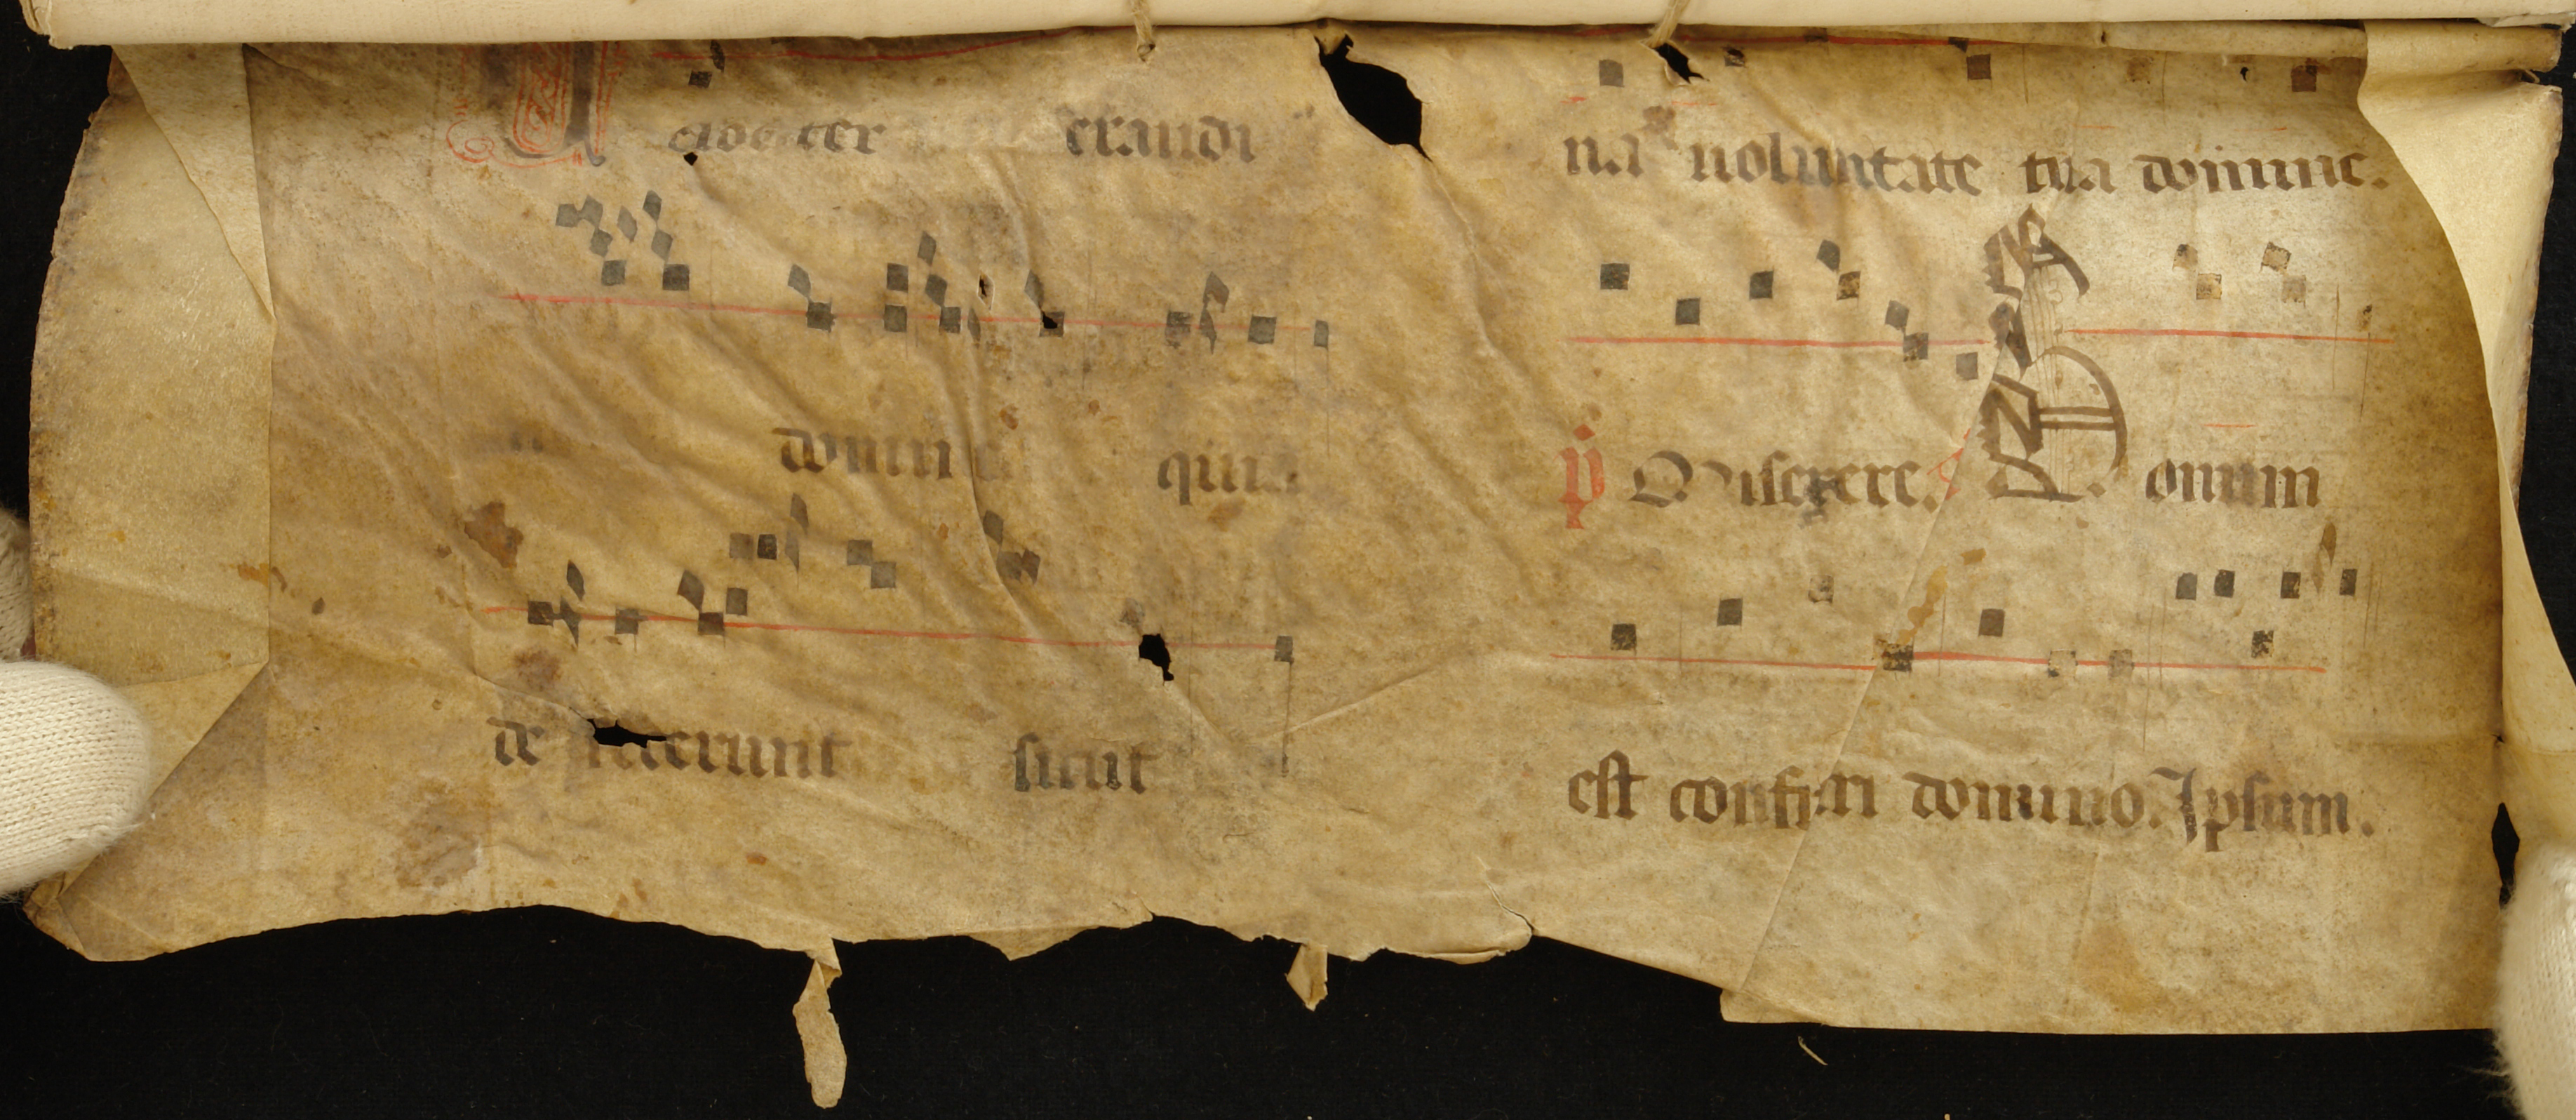 exaudi
domine quia
de fecerunt sicut
na uoluntate tua domine.
p̄ Miserere. Bonum
est confiteri domino. Ipsum.